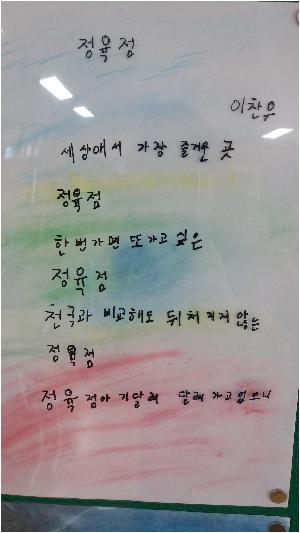 정육점
이찬우
세상에서 가장 즐거운 곳
정육점
한번가면 또가고 싶은
정육점
천국과 비교해도 뒤처지지 않는
정육점
정육점아 기달려 달려가고있으니